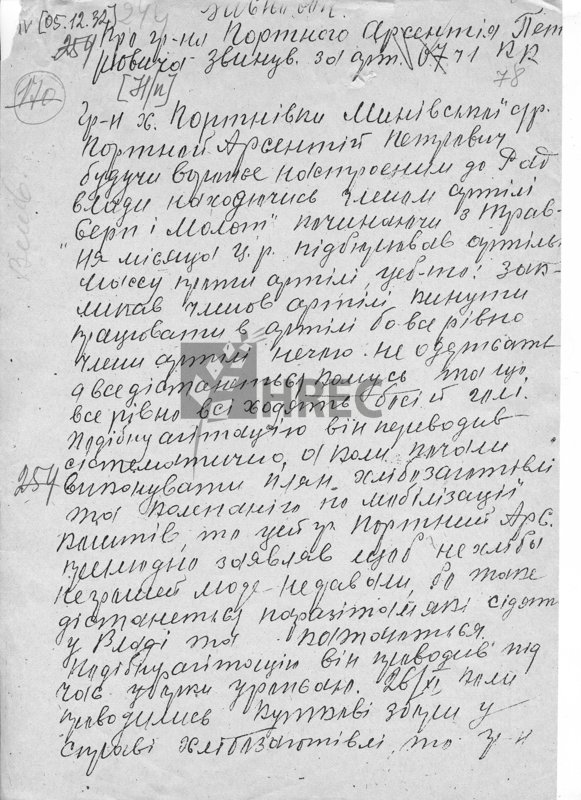 IV [05.12.32] 244 Висновок.
254 Про гр-на Портного Арсентія Пет
ровича звинув. за арт. 07 71 КК
[Н/п] 78
170
гр-н х. Портнівки Минівської с/р.
Портной Арсентій Петрович
будучи вороже настроєним до Рад
влади находючись членом артілі
"Серп і Молот" починаючи з трав-
ня місяця ц.р. підбурював артільн
массу проти артілі, цеб-то: зак-
ликав членів артілі кинути
працювати в артілі бо все рівно
члени артілі нечго не одержать
а все дістанеться комусь та що
все рівно всі ходять босі й голі.
Подібну агітацію він переводив
сістематично, а коли почали
254 виконувати план хлібозаготівлі
та компанію по мобілізації
коштів, то цей гр. Портний Арс.
прилюдно заявляв щоб не хліба
не грошей люде недавали, бо таке
дістанеться паразітам які сідять
у Владі та
подібну агітацію він проводив під
час уборки урожаю. 26/XI коли
проводились куткові збори у
справі хлібозаготівлі, то гр-н
HREC